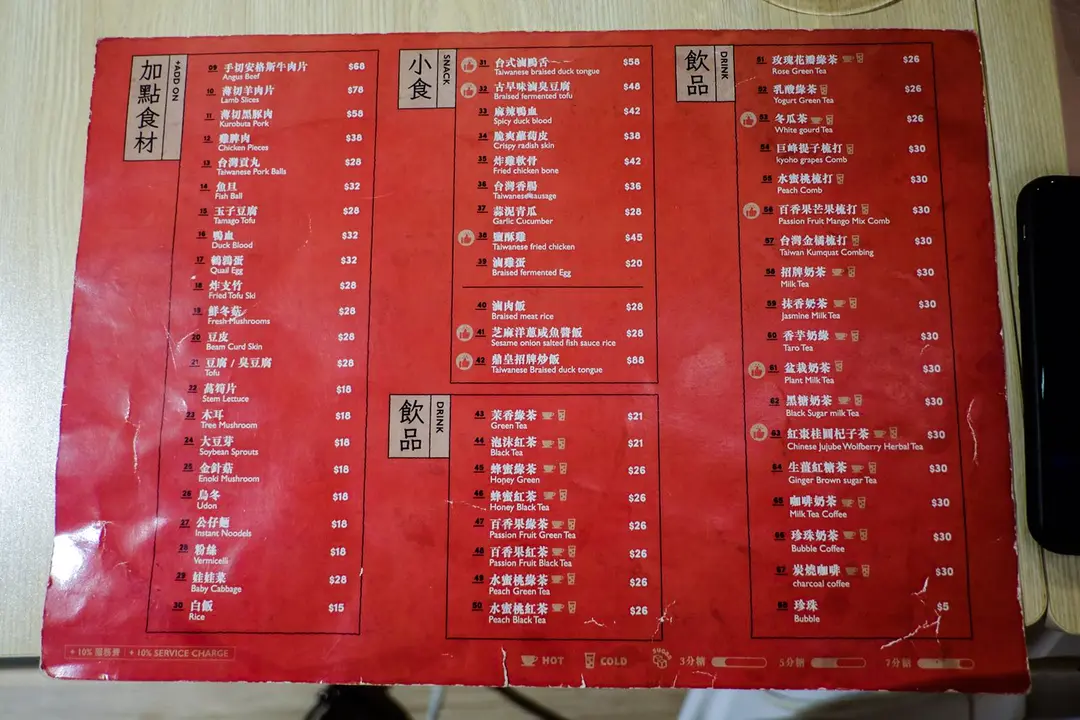 加點食材
+ADD ON
09 手切安格斯牛肉片 $68
Angus Beef
10 薄切羊肉片 $78
Lamb Slices
11 薄切黑豚肉 $58
Kurobuta Pork
12 雞脾肉 $38
Chicken Pieces
13 台灣貢丸 $28
Taiwanese Pork Balls
14 魚旦 $32
Fish Ball
15 玉子豆腐 $28
Tamago Tofu
16 鴨血 $32
Duck Blood
17 鵪鶉蛋 $32
Quail Egg
18 炸支竹 $28
Fried Tofu Ski
19 鮮冬菇 $28
Fresh Mushrooms
20 豆皮 $28
Beam Curd Skin
21 豆腐 / 臭豆腐 $28
Tofu
22 萵筍片 $18
Stem Lettuce
23 木耳 $18
Tree Mushroom
24 大豆芽 $18
Soybean Sprouts
25 金針菇 $18
Enoki Mushroom
26 烏冬 $18
Udon
27 公仔麵 $18
Instant Noodels
28 粉絲 $18
Vermicelli
29 娃娃菜 $28
Baby Cabbage
30 白飯 $15
Rice
小食
SNACK
31 台式滷鴨舌 $58
Taiwanese braised duck tongue
32 古早味滷臭豆腐 $48
Braised fermented tofu
33 麻辣鴨血 $42
Spicy duck blood
34 脆爽蘿蔔皮 $38
Crispy radish skin
35 炸雞軟骨 $42
Fried chicken bone
36 台灣香腸 $36
Taiwanese sausage
37 蒜泥青瓜 $28
Garlic Cucumber
38 鹽酥雞 $45
Taiwanese fried chicken
39 滷雞蛋 $20
Braised fermented Egg
40 滷肉飯 $28
Braised meat rice
41 芝麻洋蔥咸魚醬飯 $28
Sesame onion salted fish sauce rice
42 鼎皇招牌炒飯 $88
Taiwanese Braised duck tongue
飲品
DRINK
43 茉香綠茶 $21
Green Tea
44 泡沫紅茶 $21
Black Tea
45 蜂蜜綠茶 $26
Honey Green
46 蜂蜜紅茶 $26
Honey Black Tea
47 百香果綠茶 $26
Passion Fruit Green Tea
48 百香果紅茶 $26
Passion Fruit Black Tea
49 水蜜桃綠茶 $26
Peach Green Tea
50 水蜜桃紅茶 $26
Peach Black Tea
飲品
DRINK
51 玫瑰花瓣綠茶 $26
Rose Green Tea
52 乳酸綠茶 $26
Yogurt Green Tea
53 冬瓜茶 $26
White gourd Tea
54 巨峰提子梳打 $30
kyoho grapes Comb
55 水蜜桃梳打 $30
Peach Comb
56 百香果芒果梳打 $30
Passion Fruit Mango Mix Comb
57 台灣金橘梳打 $30
Taiwan Kumquat Combing
58 招牌奶茶 $30
Milk Tea
59 抹香奶茶 $30
Jasmine Milk Tea
60 香芋奶綠 $30
Taro Tea
61 盆栽奶茶 $30
Plant Milk Tea
62 黑糖奶茶 $30
Black Sugar milk Tea
63 紅棗桂圓杞子茶 $30
Chinese Jujube Wolfberry Herbal Tea
64 生薑紅糖茶 $30
Ginger Brown sugar Tea
65 咖啡奶茶 $30
Milk Tea Coffee
66 珍珠奶茶 $30
Bubble Coffee
67 炭燒咖啡 $30
charcoal coffee
68 珍珠 $5
Bubble
+ 10% 服務費 + 10% SERVICE CHARGE
HOT COLD SUGAR 3分糖 5分糖 7分糖